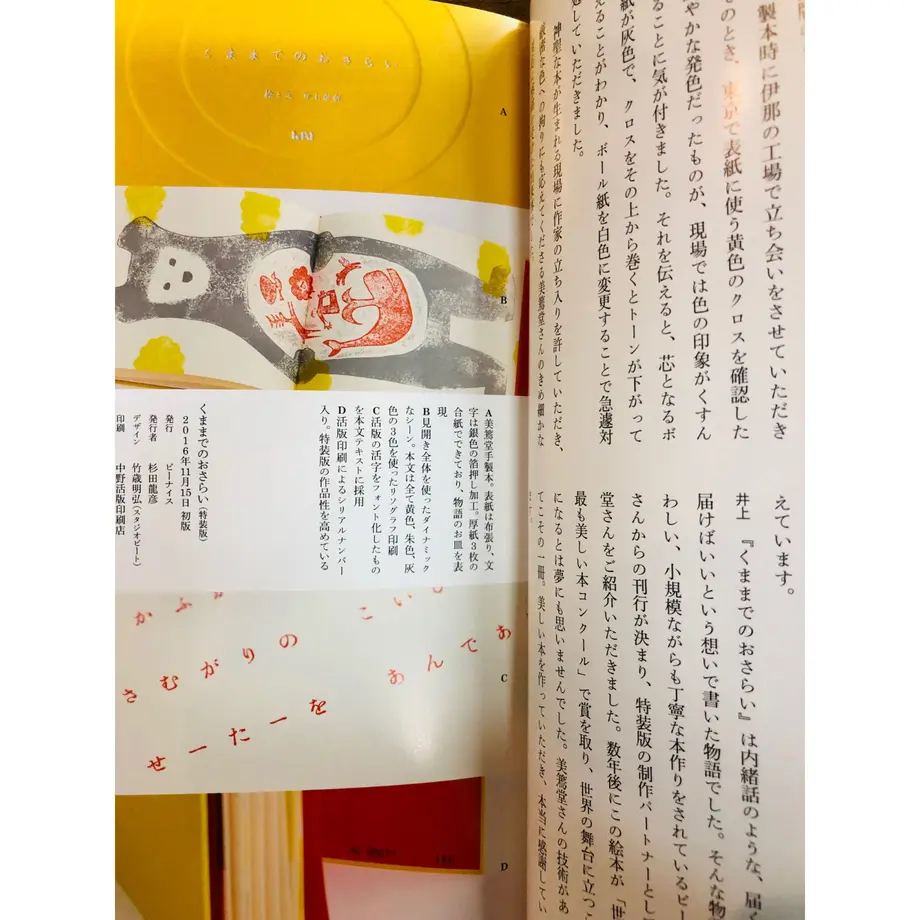 くままでのおさらい
A
B
A 美篶堂手製本。表紙は布張り、文
字は銀色の箔押し加工。厚紙3枚の
合紙でできており、物語のお皿を表
現
B 見開き全体を使ったダイナミック
なシーン。本文は全て黄色、朱色、灰
色の3色を使ったリソグラフ印刷
C 活版の活字をフォント化したもの
を本文テキストに採用
D 活版印刷によるシリアルナンバー
入り。特装版の作品性を高めている
くままでのおさらい(特装版)
2016年11月15日 初版
発行 ビーナイス
発行者 杉田龍彦
デザイン 竹歳明弘(スタジオビート)
印刷 中野活版印刷店
かふ
さむがりの
せーたーを
こいし
あんであ
C
D
製本時に伊那の工場で立ち会いをさせていただき
そのとき、東京で表紙に使う黄色のクロスを確認した
やかな発色だったものが、現場では色の印象がくすん
ることに気が付きました。それを伝えると、芯となるボ
紙が灰色で、クロスをその上から巻くとトーンが下がって
えることがわかり、ボール紙を白色に変更することで急遽対
処していただきました。
神聖な本が生まれる現場に作家の立ち入りを許していただき、
な色への拘りにも応えてくださる美篶堂さんのきめ細かな
えています。
井上 『くままでのおさらい』は内緒話のような、届く
届けばいいという想いで書いた物語でした。そんな物
わしい、小規模ながらも丁寧な本作りをされているビ
さんからの刊行が決まり、特装版の制作パートナーとし
堂さんをご紹介いただきました。数年後にこの絵本が「世
最も美しい本コンクール」で賞を取り、世界の舞台に立つこ
になるとは夢にも思いませんでした。美篶堂さんの技術があ
てこその一冊。美しい本を作っていただき、本当に感謝してい
ます。